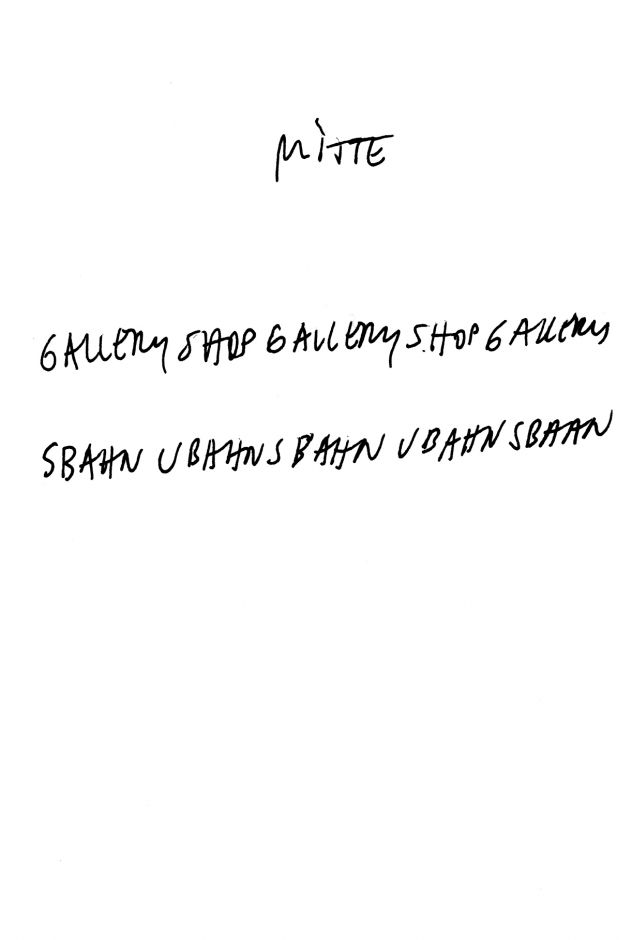 MITTE
GALLERY SHOP GALLERY SHOP GALLERY
SBAHN UBAHN SBAHN UBAHN SBAHN